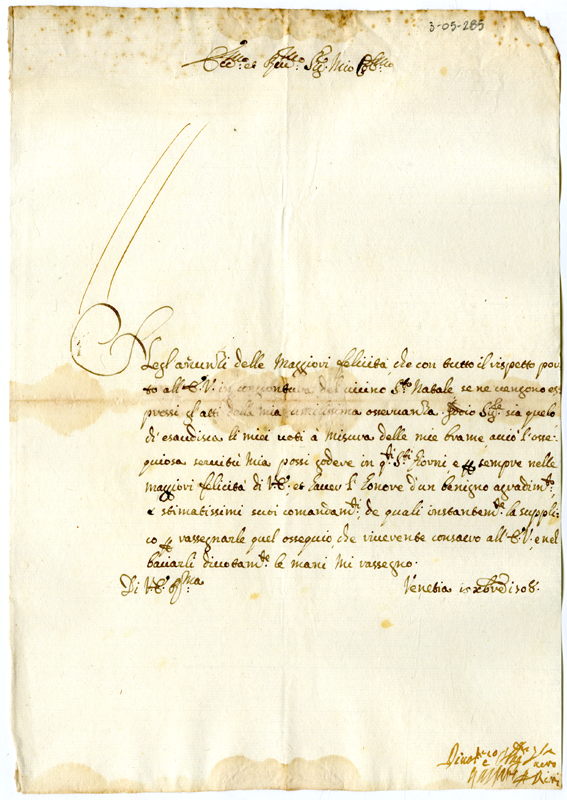 3-05-285
Ecc.mo et Rev.mo Sig.r Mio Col.mo
Negl'anuntij delle Maggiori felicità, che con tutto il rispetto por
to all'E.V. in congiontura del vicino S.to Natale se ne vengono es
pressi gl'atti della mia umilissima osservanza. Sia quelo
di esaudisca li miei voti à misura delle mie brame, acciò l'osse
quiosa servitù Mia possi godere in q.ti S.ti Giorni e sempre nelle
maggiori felicità di V.E. et haver l'honore d'un benigno agradim.to
e stimatissimi suoi comandam.ti, de quali instantem.te la suppli
co rassegnarle quel ossequio, che riverente consacro all'E.V., e nel
baciarli divotam.te le mani Mi rassegno.
Di V.E. R.ma Venetia